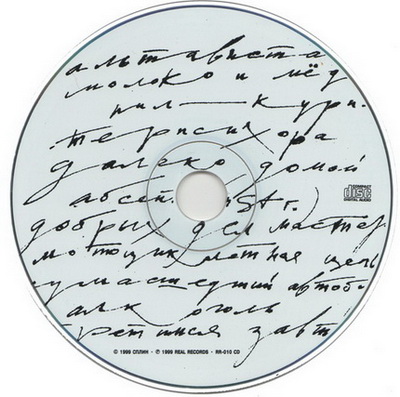 альтависта
молоко и мёд
пил — кури
терпсихора
далеко домой
абсен (str.)
добрых дел мастер
мотоциклетная цепь
сумасшедший автоб
алкоголь
ретимся завт
COMPACT disc DIGITAL AUDIO
© 1999 СПЛИН · ℗ 1999 REAL RECORDS · RR-010 CD